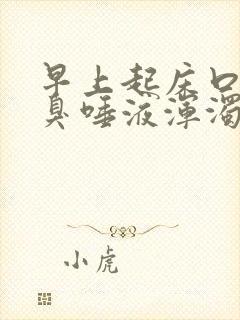 早上起床口
臭唾液浑浊
小虎